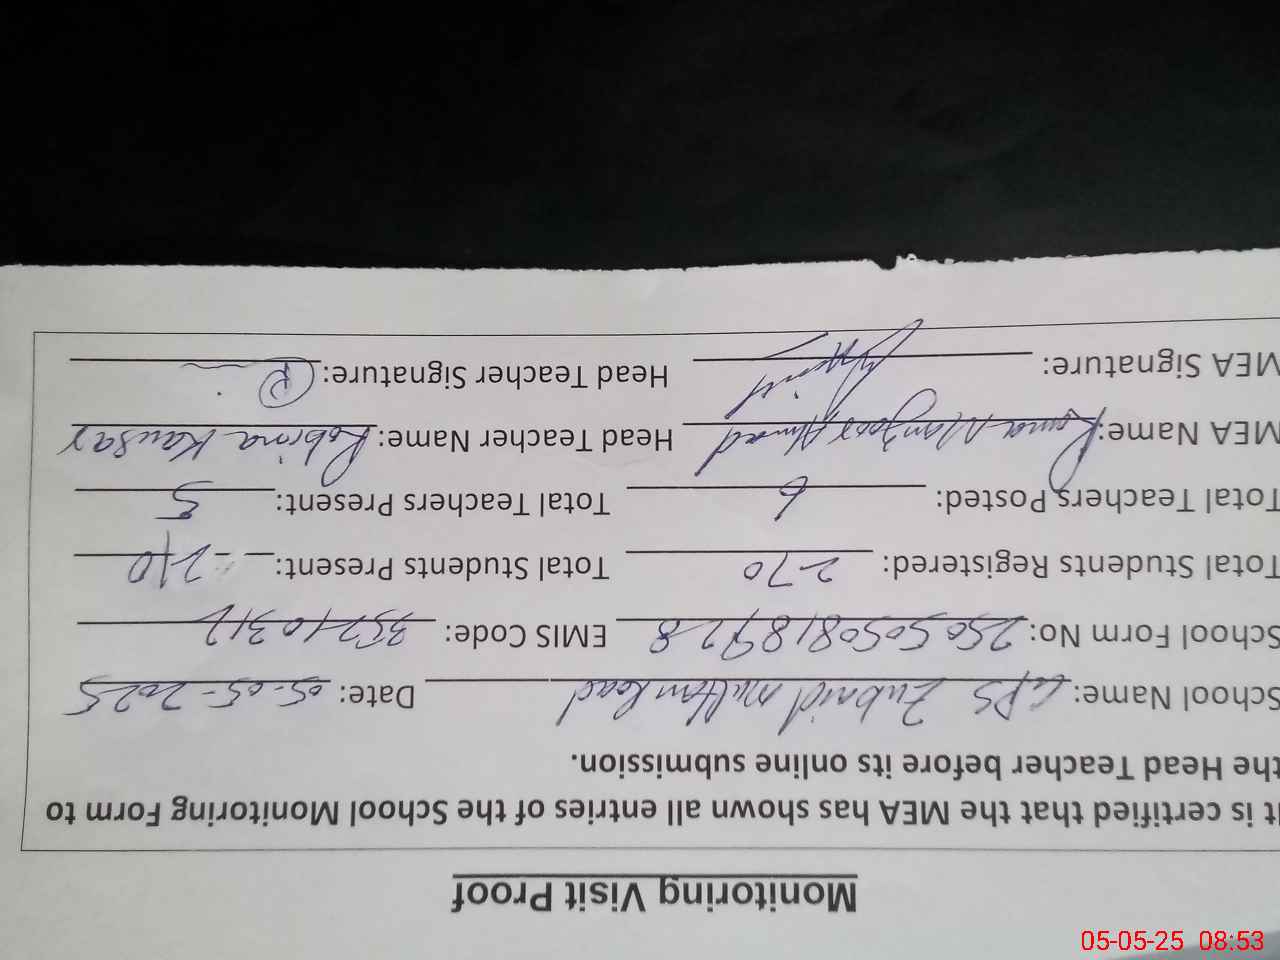 Monitoring Visit Proof
It is certified that the MEA has shown all entries of the School Monitoring Form to
the Head Teacher before its online submission.
School Name: GPS Zubaid multan Road Date: 05-05-2025
School Form No: 2505050818728 EMIS Code: 35210312
Total Students Registered: 270 Total Students Present: 210
Total Teachers Posted: 6 Total Teachers Present: 5
MEA Name: Rana Manzoor Ahmad Head Teacher Name: Robina Kausar
MEA Signature: Head Teacher Signature:
05-05-25 08:53